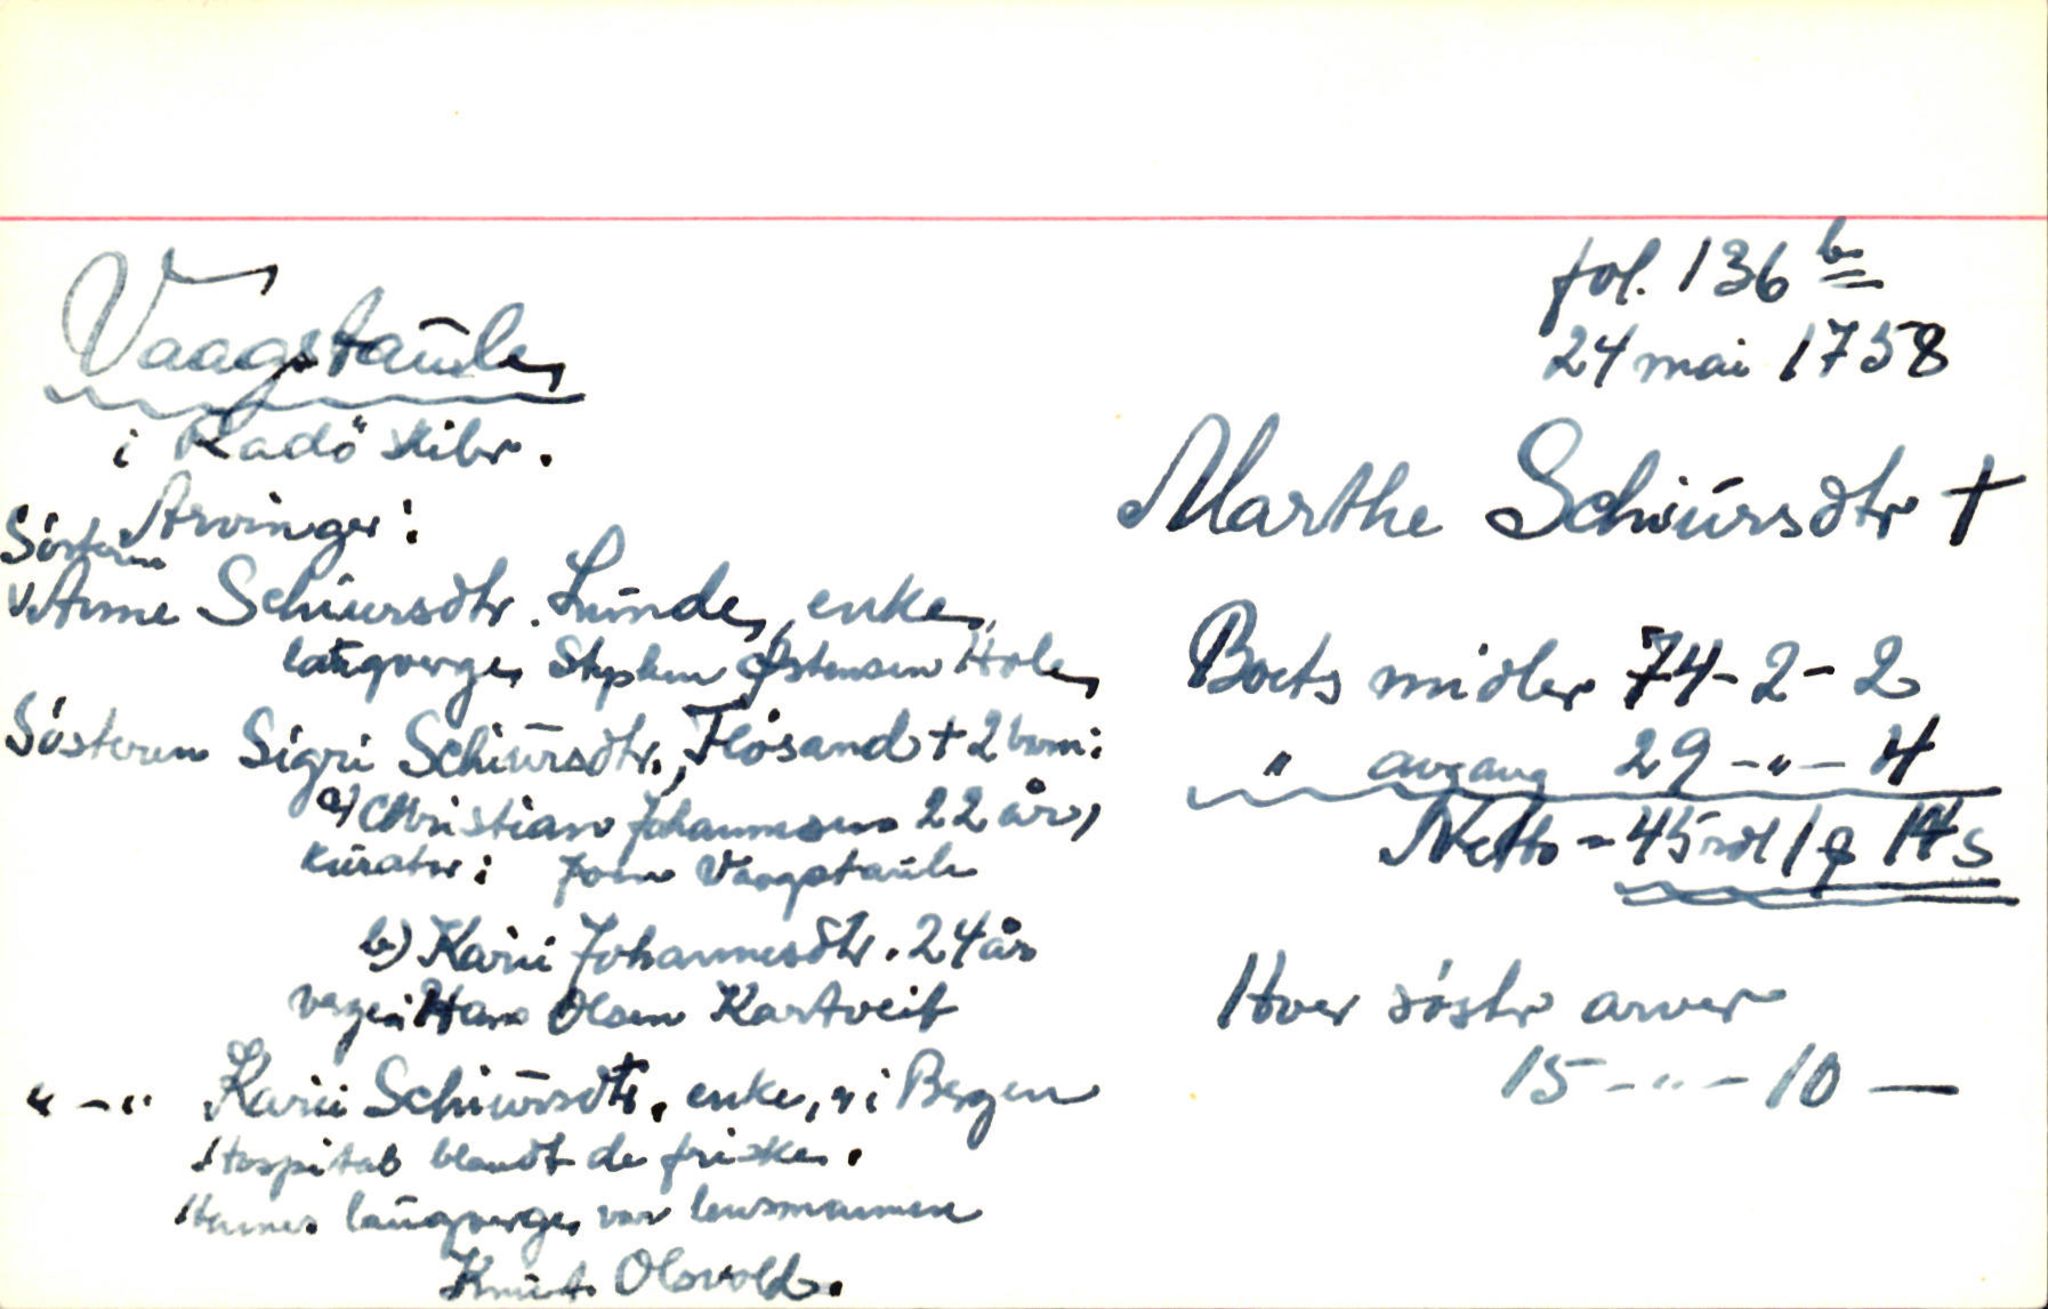 Vaagstaule
i Radö skibr.
Arvinger:
Söstern
Anne Schiursdtr. Lunde, enke,
laugverge, Stephen Østensen Hole,
Söstern Sigri Schiursdtr. Flösand + 2 barn:
a) Christian Johannesen 22 år,
kurator: Joen Vaagstaule
b) Karii Johannesdtr. 24 år
verge: Hans Olsen Kartveit
" - " Karii Schiursdtr. enke, i Bergen
Hospital blandt de friske.
Hennes laugverge var lensmannen
Knut Olsvold.
fol. 136 b
24 mai 1758
Marthe Schiursdtr †
Boets midler 74 - 2 - 2
" avgang 29 - " - 4
Netto = 45 rdl 1 q 14 s
Hver söstr arver
15 - " - 10 —